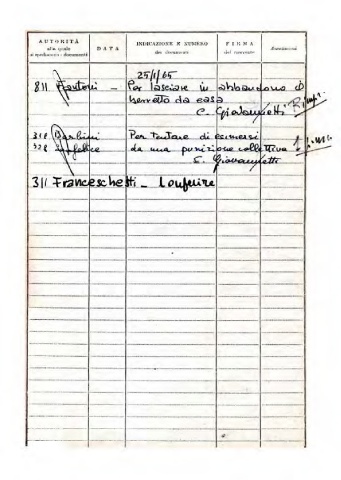 AUTORITÀ
alla quale
DATA
INDICAZIONE E NUMERO
dei documenti
FIRMA
del ricevente
Annotazioni
25/1/65
811 Fantoni - Per lasciare in abbandono il
berretto da casa
C. Giovannetti
318 Barbini Per tentare di esimersi
328 da una punizione collettiva
S. Giovannetti
311 Franceschetti -